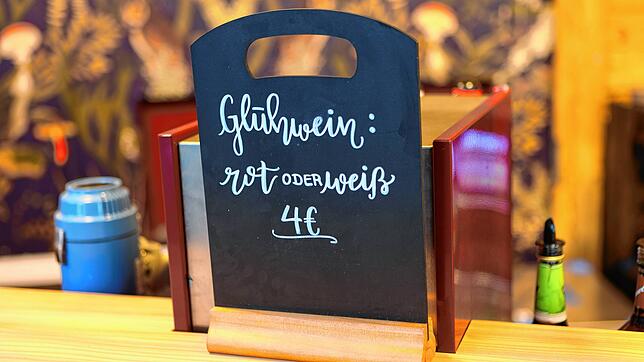 Glühwein:
rot ODER weiß
4€